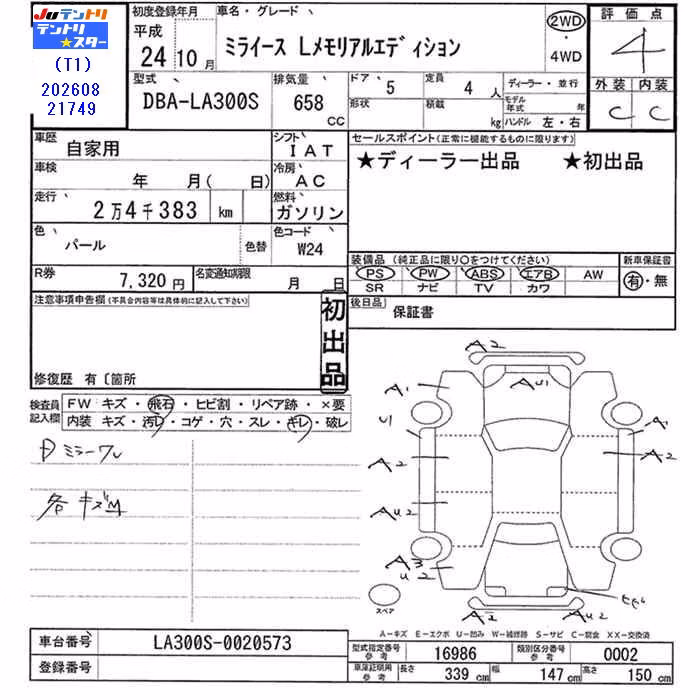 Juテントリ
テントリ
★スター
(T1)
202608
21749
初度登録年月
平成
24年10月
車名・グレード
ミライース Lメモリアルエディション
2WD
・
4WD
評価点
4
外装 内装
C C
型式
DBA-LA300S
排気量
658
CC
ドア 5
定員 4人
形状
積載 kg
ディーラー・並行
モデル年式 年
ハンドル 左・右
車歴 自家用
シフト IAT
車検 年 月( 日)
冷房 AC
走行 2万4千383 km
燃料 ガソリン
色 パール
色替
色コード W24
R券 7,320円
名変通知期限 月 日
セールスポイント(正常に機能するものに限ります)
★ディーラー出品 ★初出品
装備品(純正品に限り○をつけてください)
新車保証書
PS PW ABS エアB AW
SR ナビ TV カワ
有・無
後日品 保証書
注意事項申告欄(不具合内容等は具体的に記入して下さい)
初出品
修復歴 有〔箇所
検査員記入欄
FW キズ・飛石・ヒビ割・リペア跡・×要
内装 キズ・汚レ・コゲ・穴・スレ・キレ・破レ
各キズM
A2
A1
AU1
U1
A1
A2
A2
AU2
A3
U2
A2
AU2
スペア
A−キズ E−エクボ U−凹み W−補修跡 S−サビ C−腐食 XX−交換済
車台番号 LA300S-0020573
登録番号
型式指定番号 参考 16986
類別区分番号 参考 0002
車庫証明用 参考 長さ 339cm 幅 147cm 高さ 150cm